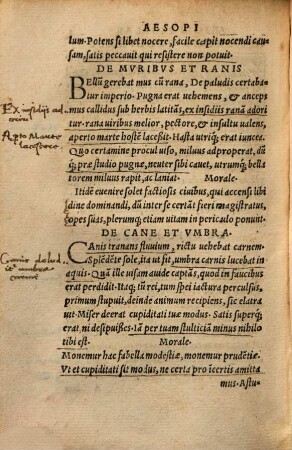 AESOPI
lum. Potens si libet nocere, facile capit nocendi cau-
sam, satis peccauit qui resistere non potuit.
DE MVRIBVS ET RANIS
BEllũ gerebat mus cũ rana, De paludis certaba-
tur imperio. Pugna erat uehemens, & anceps
mus callidus sub herbis latitãs, ex insidiis ranã adori
tur. rana uiribus melior, pectore, & insultu ualens,
aperto marte hostẽ lacessit. Hasta utriq; erat iuncea.
Quo certamine procul uiso, miluus adproperat, dũ
q; præ studio pugnæ, neuter sibi cauet, utrumq; bella
torem miluus rapit, ac laniat. Morale.
Itidẽ euenire solet factiosis ciuibus, qui accensi libi
dine dominandi, dũ inter se certãt fieri magistratus,
opes suas, plerumq; etiam uitam in periculo ponunt
DE CANE ET VMBRA.
CAnis tranans fluuium, rictu uehebat carnem.
Splẽdẽte sole, ita ut fit, umbra carnis lucebat in
aquis. Quã ille uisam auide captãs, quod in faucibus
erat perdidit. Itaq; tũ rei, tum spei iactura perculsus,
primum stupuit, deinde animum recipiens, sic elatra
uit. Miser deerat cupiditati tuæ modus. Satis superq;
erat, ni desipuisses. Iã per tuam stulticiã minus nihilo
tibi est. Morale.
Monemur hac fabella modestiæ, monemur prudẽtiæ.
Vt et cupiditati sit modus, ne certa pro ĩcertis amitta
mus. Astu-
Ex insidijs ad
oriri
Aperto Marte
lacessere